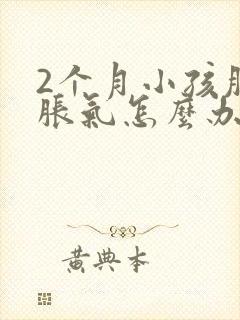 2个月小孩肚
胀氣怎麼办
黄典本